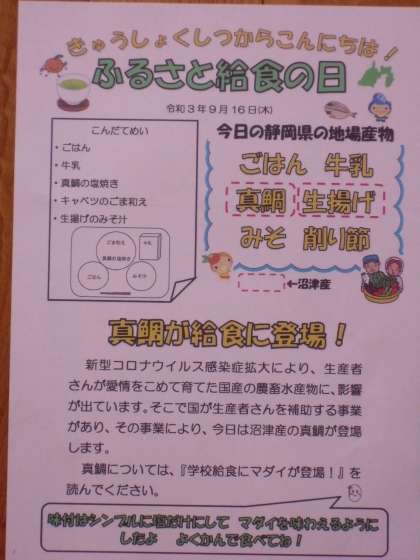 きゅうしょくしつからこんにちは！
ふるさと給食の日
令和３年９月１６日(木)
こんだてめい
・ごはん
・牛乳
・真鯛の塩焼き
・キャベツのごま和え
・生揚げのみそ汁
ごま和え
牛乳
真鯛の塩焼き
ごはん
みそ汁
今日の静岡県の地場産物
ごはん 牛乳
真鯛 生揚げ
みそ 削り節
←沼津産
真鯛が給食に登場！
新型コロナウイルス感染症拡大により、生産者
さんが愛情をこめて育てた国産の農畜水産物に、影響
が出ています。そこで国が生産者さんを補助する事業
があり、その事業により、今日は沼津産の真鯛が登場
します。
真鯛については、『学校給食にマダイが登場！』を
読んでください。
味付はシンプルに塩だけにして マダイを味わえるように
したよ よくかんで食べてね！